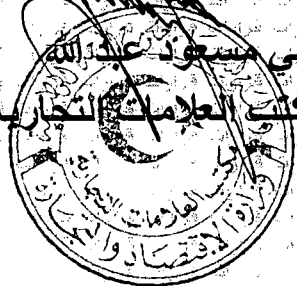 ي مسعود عبدالله
كتب العلامات التجارية
مكتب العلامات التجارية
وزارة الاقتصاد والتجارة